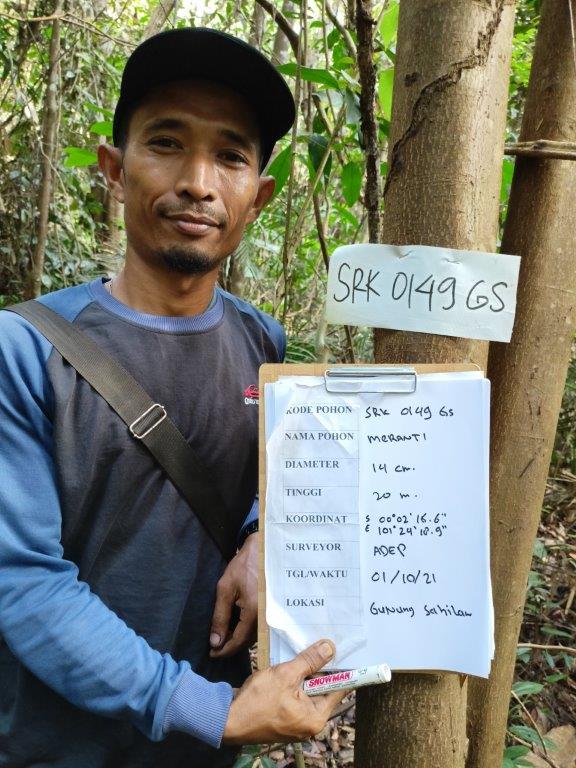 SRK 0149 GS
KODE POHON SRK 0149 GS
NAMA POHON MERANTI
DIAMETER 14 cm.
TINGGI 20 m.
KOORDINAT S 00°02'16.6"
E 101°24'18.9"
SURVEYOR ADEP
TGL/WAKTU 01/10/21
LOKASI Gunung Sahilan
SNOWMAN